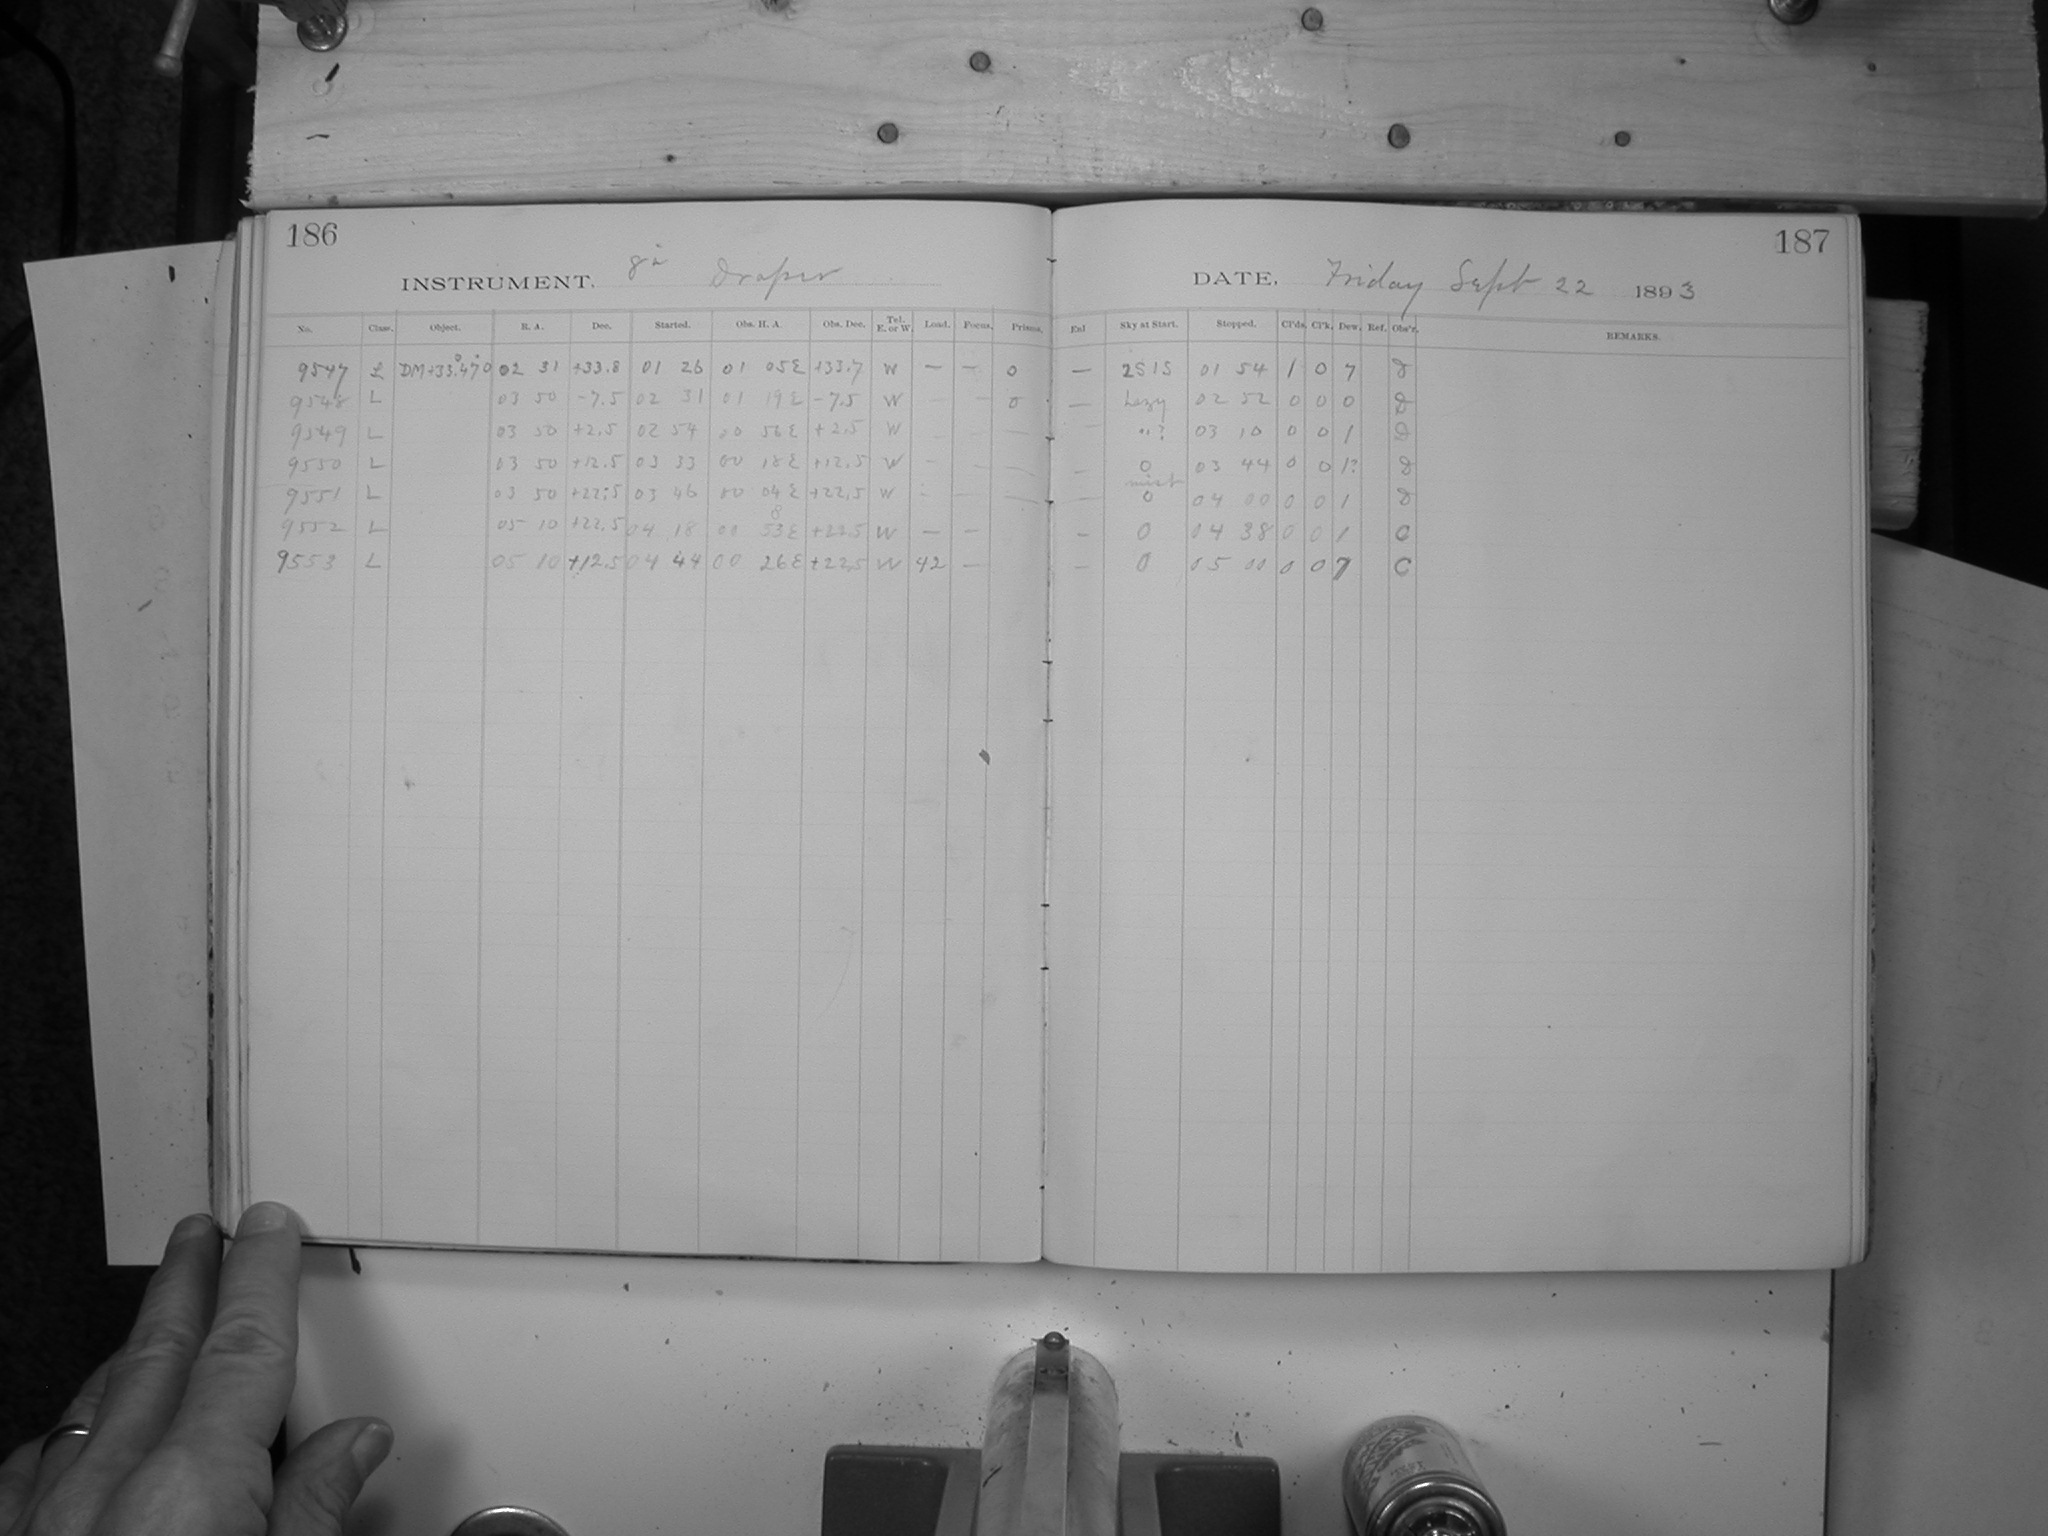 186
187
INSTRUMENT. 8 in Draper
DATE, Friday Sept 22 1893
No. Class. Object. R. A. Dec. Started. Obs. H. A. Obs. Dec. Tel. E. or W. Load. Focus. Prisms. Enl Sky at Start. Stopped. Cl'ds. Cl'k. Dew. Ref. Obs'r. REMARKS.
9547 L DM+33.°470 02 31 +33.8 01 26 01 05E +33.7 W — — 0 — 2S1S 01 54 1 0 7 D
9548 L 03 50 -7.5 02 31 01 19E -7.5 W — — 0 — hazy 02 52 0 0 0 D
9549 L 03 50 +2.5 02 54 00 56E +2.5 W — — — "? 03 10 0 0 1 D
9550 L 03 50 +12.5 03 33 00 18E +12.5 W — — — — 0 03 44 0 0 1? D
mist
9551 L 03 50 +22.5 03 46 00 04E +22.5 W — — — — 0 04 00 0 0 1 D
8
9552 L 05 10 +22.5 04 18 00 53E +22.5 W — — — 0 04 38 0 0 1 C
9553 L 05 10 +12.5 04 44 00 26E +22.5 W 42 — — 0 05 00 0 0 7 C